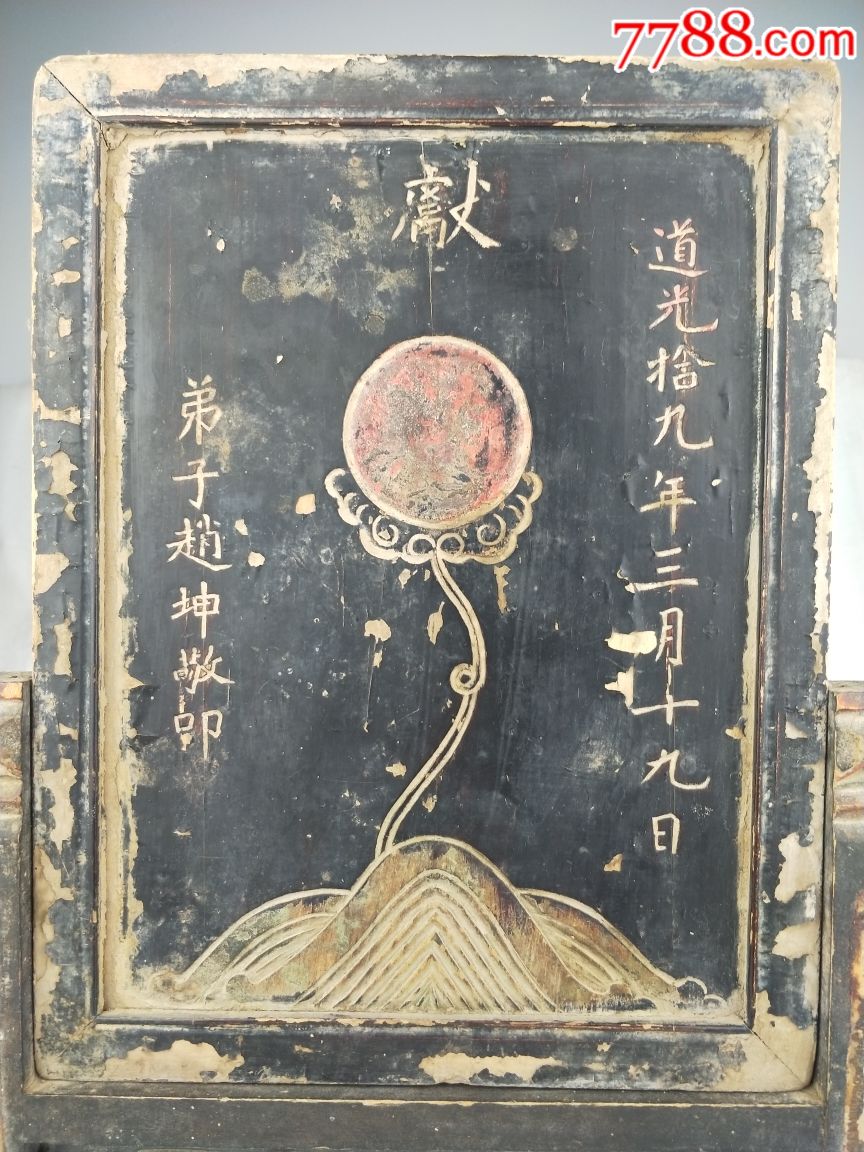 7788.com
獻
道光拾九年三月十九日
弟子趙坤敬卯